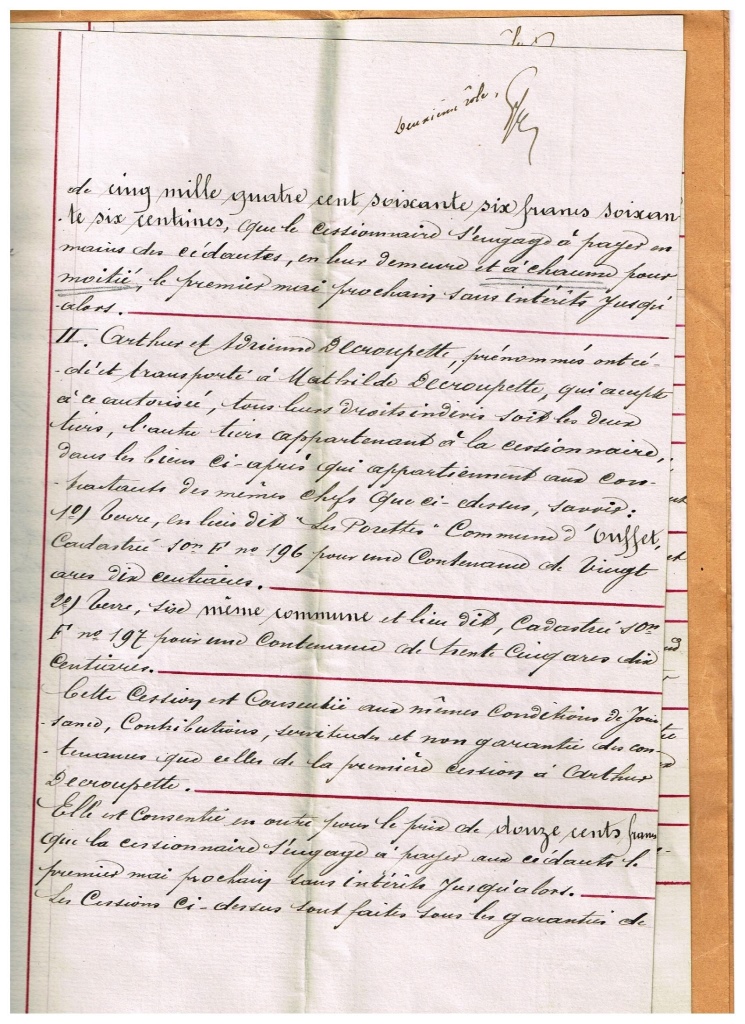 Deuxième rôle.
de cinq mille quatre cent soixante six francs soixan
-te six centimes, que le cessionnaire s'engage à payer en
mains des cédantes, en leur demeure et à chacune pour
moitié, le premier mai prochain sans intérêts jusqu'
-alors.
II. Arthur et Adrienne Decroupette, prénommés ont cé-
-dé et transporté à Mathilde Decroupette, qui accepte
à ce autorisée, tous leurs droits indivis soit les deux
tiers, l'autre tiers appartenant à la cessionnaire,
dans les biens ci-après qui appartiennent aux con-
-tractants des mêmes chefs que ci-dessus, savoir:
1°) Terre, en lieu dit "Les Porettes" Commune d'Ouffet,
Cadastrée son F no 196 pour une Contenance de Vingt
ares dix centiares.
2°) Terre, sise même commune et lieu dit, Cadastrée son
F no 197 pour une Contenance de trente Cinq ares dix
Centiares.
Cette Cession est Consentie aux mêmes Conditions de Jouis
-sance, Contributions, servitudes et non garantie des con-
-tenances que celles de la première cession à Arthur
Decroupette.
Elle est Consentie en outre pour le prix de douze cents francs
que la cessionnaire s'engage à payer aux cédants le
premier mai prochain sans intérêts jusqu'alors.
Les Cessions Ci-dessus sont faites sous les garanties de